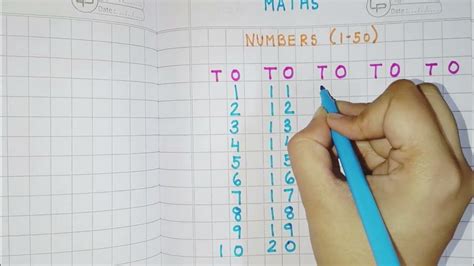 Date
MATHS
Date
NUMBERS (1-50)
T O T O T O T O T O
1 11
2 12
3 13
4 1
5 15
6 16
7 17
8 18
9 19
10 20